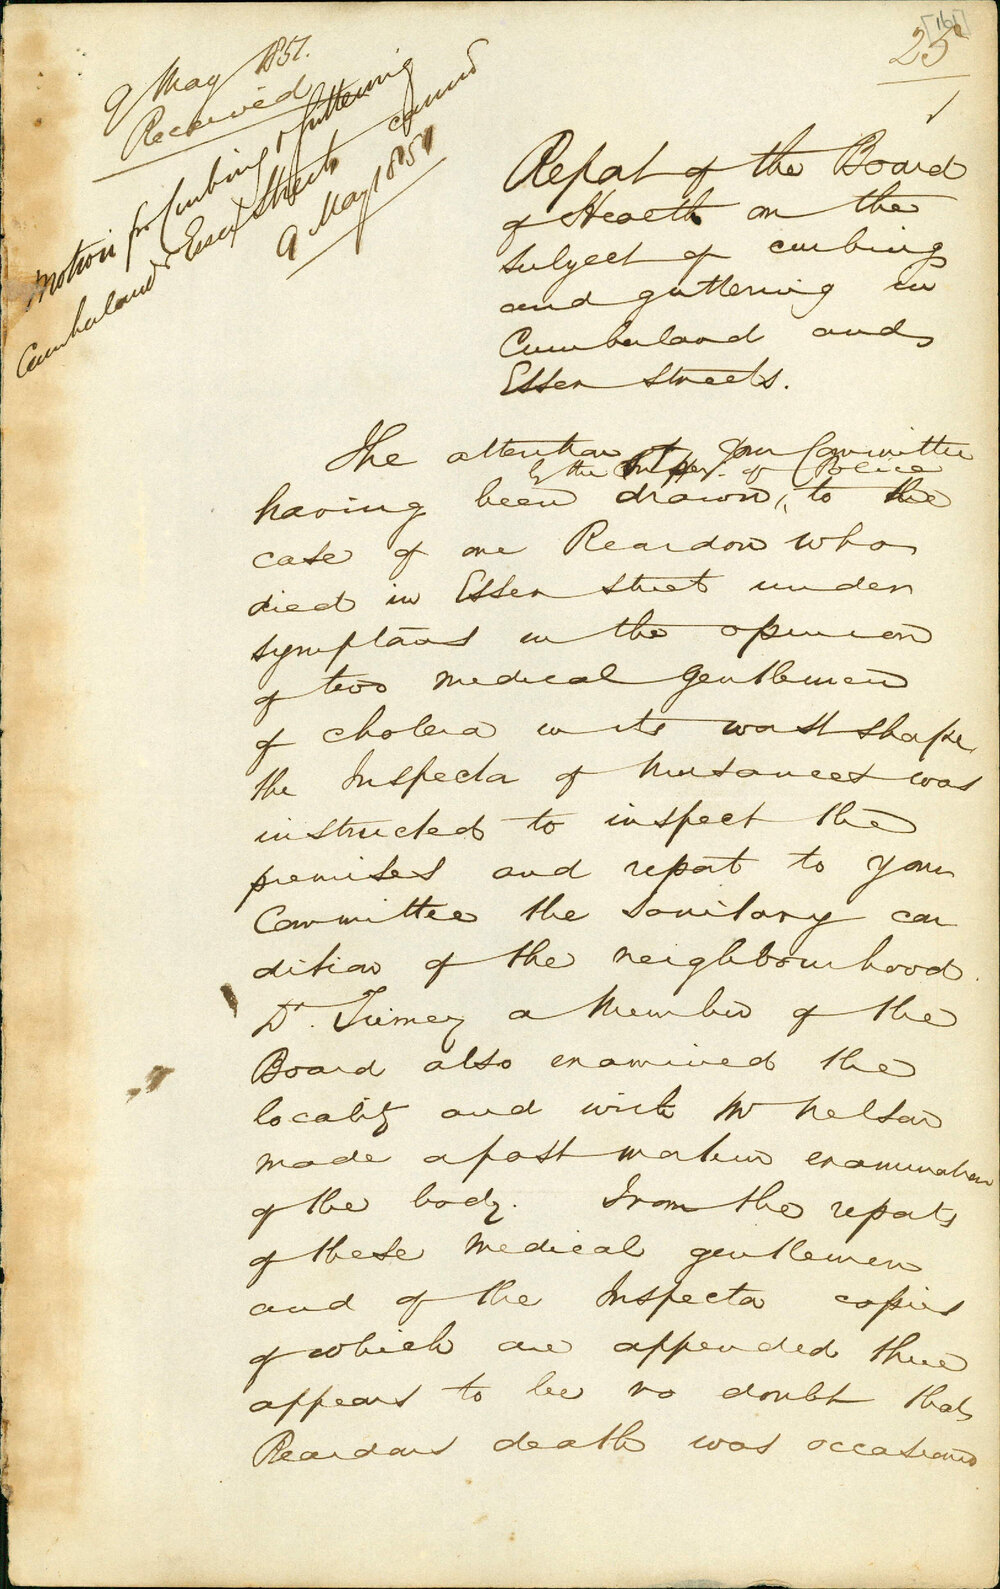 [161]
25
9 May 1857.
Received
Motion for curbing & guttering
Cumberland & Essex Streets carried
9 May 1857
Report of the Board
of Health on the
subject of curbing
and guttering in
Cumberland and
Essex Streets.
The attention of your Committee
by the of Police
having been drawn, to the
case of one Reardon who
died in Essex Street under
symptoms in the opinion
of two medical gentlemen
of cholera in its worst shape
the Inspector of Nuisances was
instructed to inspect the
premises and report to your
Committee the sanitary con
dition of the neighbourhood.
Dr. Tierney a Member of the
Board also examined the
locality and with Mr Nelson
made a post mortem examination
of the body. From the reports
of these medical gentlemen
and of the Inspector copies
of which are appended there
appears to be no doubt that
Reardons death was occasioned